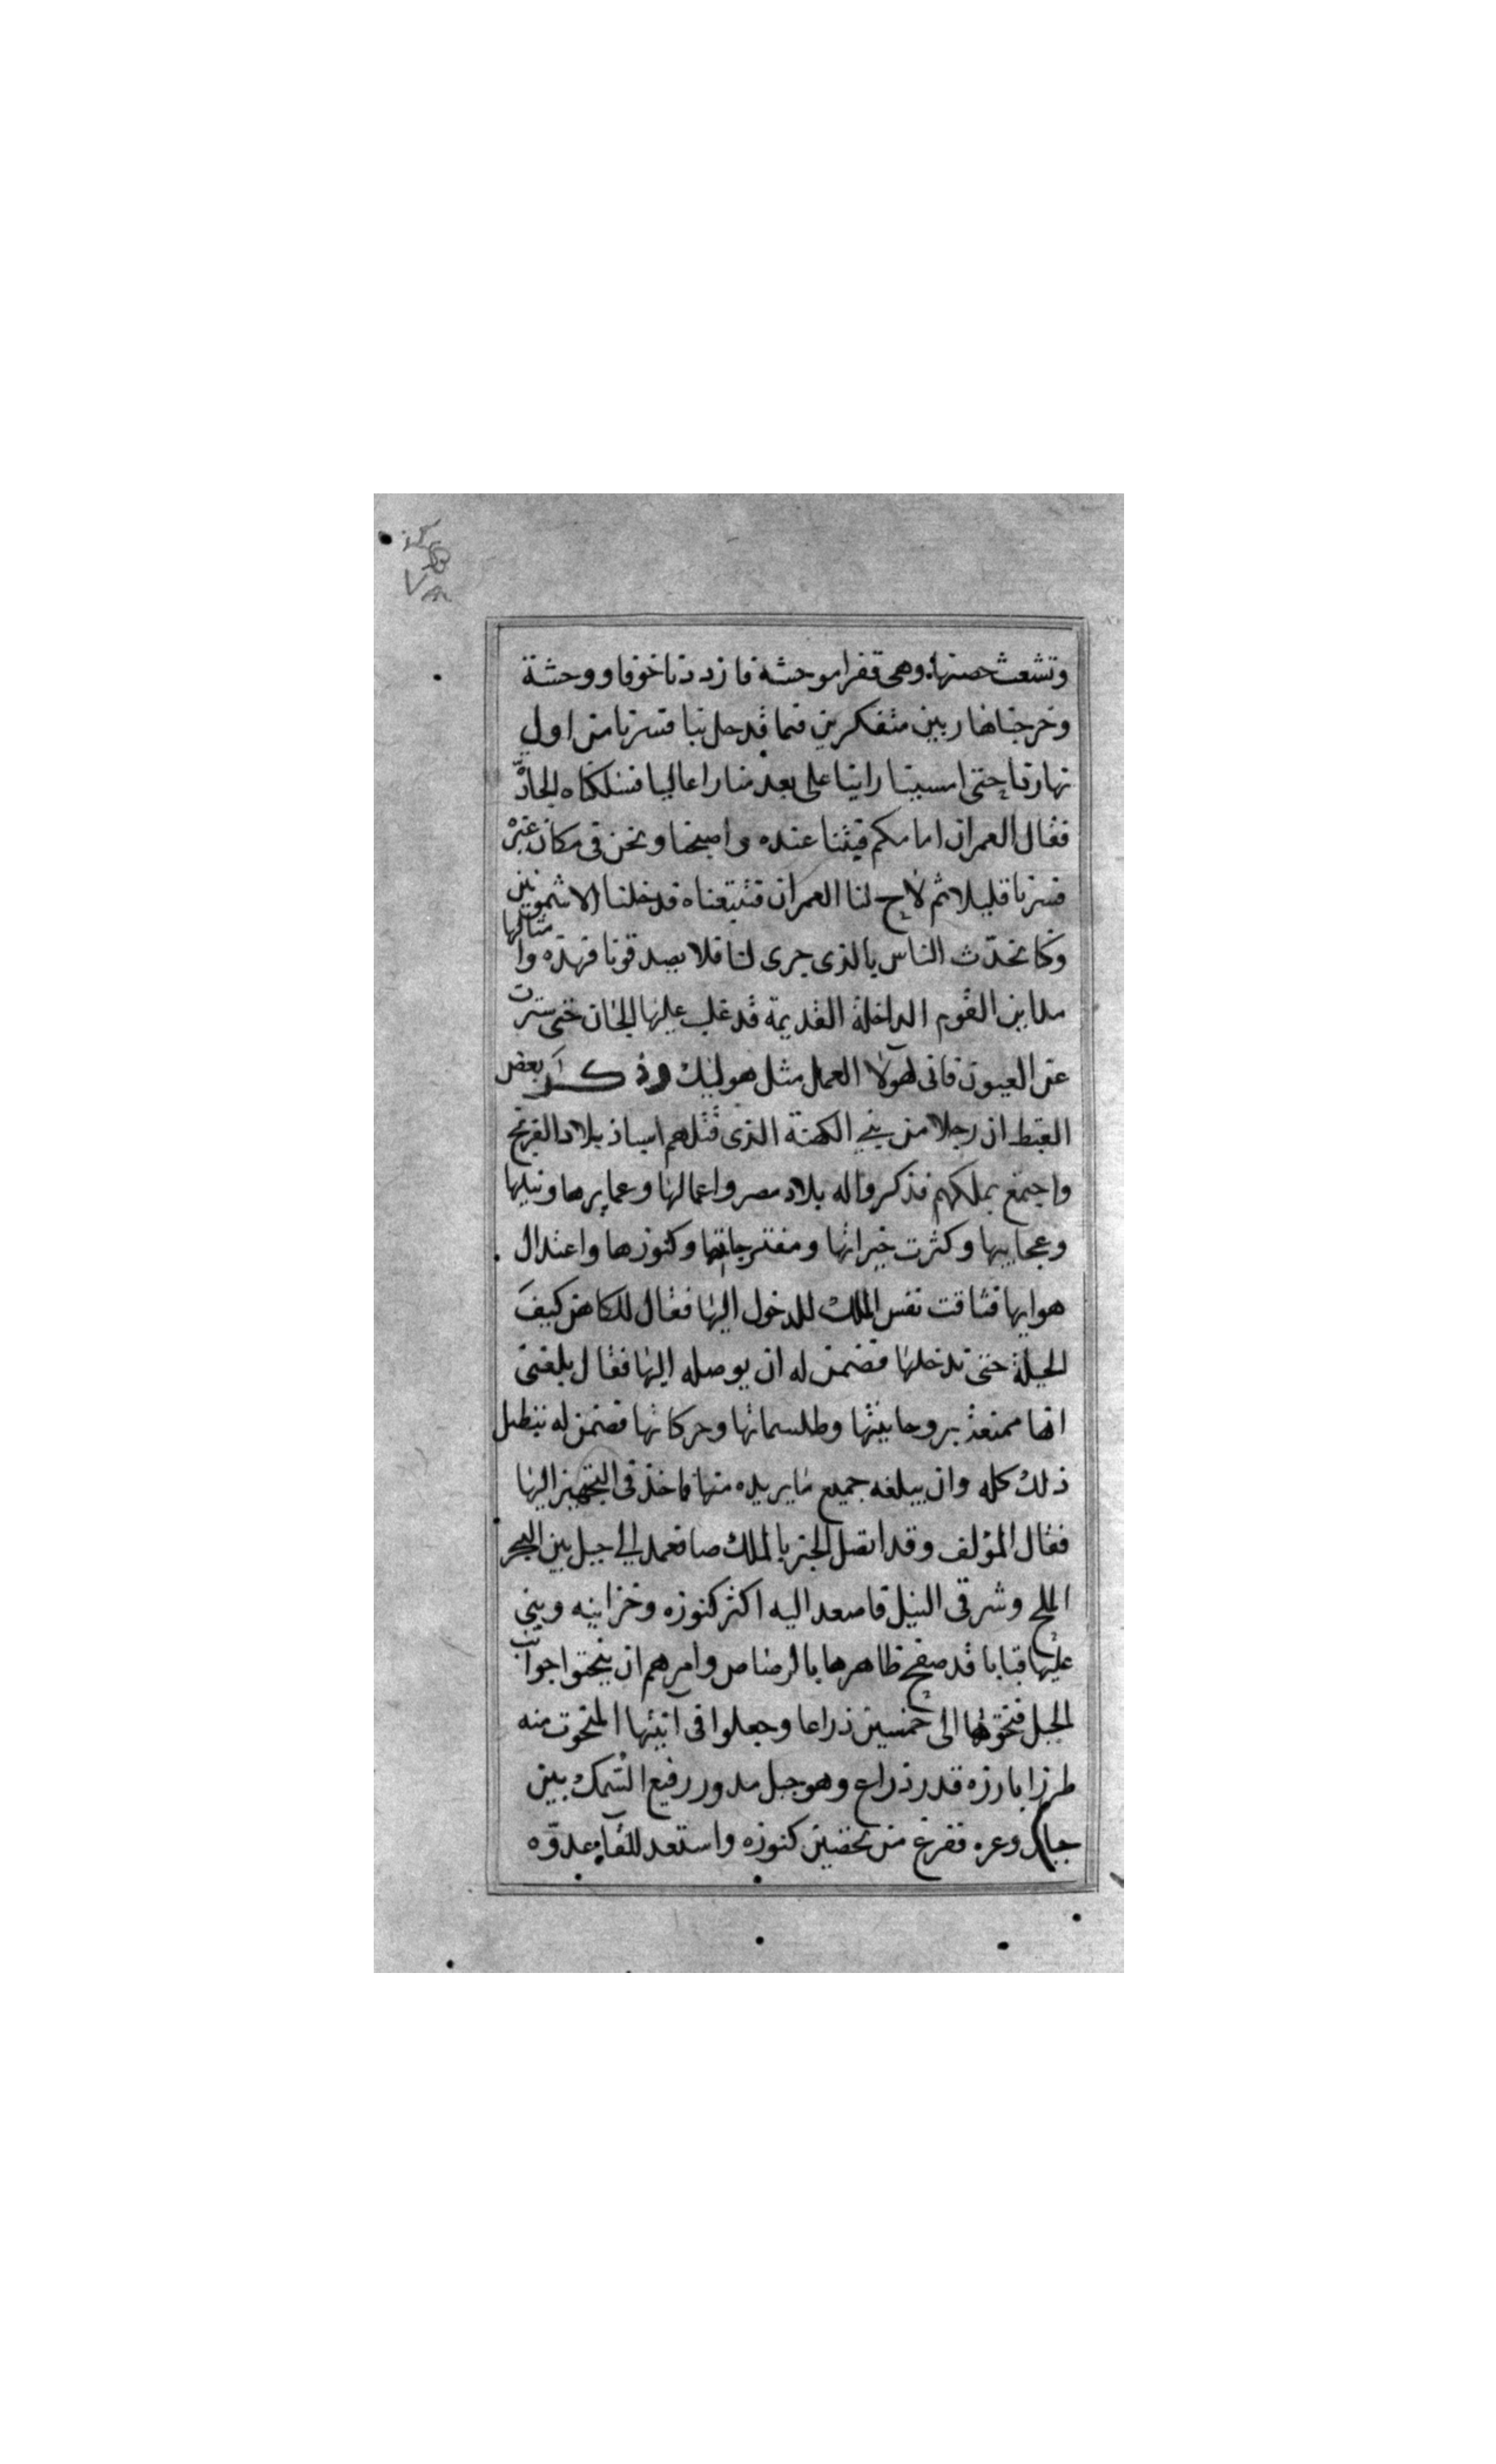 وتشعث حصنها وهى قفرا موحشة فازددنا خوفا ووحشة
وخرجنا هاربين متفكرين فما قد حل بنا فسرنا من اول
نهارنا حتى امسينا راينا على بعد منارا عاليا فسلكناه الجادّ
فقال العمران امامكم فبتنا عنده واصبحنا ونحن فى مكان غيره
فسرنا قليلا ثم لاح لنا العمران فتبعناه فدخلنا الاشمونين
وكنا نحدّث الناس بالذى جرى لنا فلا يصدقونا فهذه وامثالها
مداين القوم الداخلة القديمة قد غلب عليها الجان حتى سترت
عن العيون فانى لهولا العمل مثل هوليك وذكر بعض
القبط ان رجلا من بنى الكهنة الذى قتلهم ايساذ بلاد الفرنج
واجتمع بملكهم فذكروا له بلاد مصر واعمالها وعمايرها ونيلها
وعجايبها وكثرت خيراتها ومفترجاتها وكنوزها واعتدال
هوايها فتاقت نفس الملك للدخول اليها فقال للكاهن كيف
الحيلة حتى ندخلها فضمن له ان يوصله اليها فقال بلغنى
انها ممتعة بروحانيتها وطلسماتها وحركاتها فضمن له تبطيل
ذلك كله وان يبلغه جميع ما يريده منها فاخذ فى التجهيز اليها
فقال المؤلف وقد اتصل الخبر بالملك صا فعمد الى جبل بين البحر
الملح وشرقى النيل فاصعد اليه اكثر كنوزه وخزاينه وبنى
عليها قبابا قد صفح ظاهرها بالرصاص وامرهم ان ينحتوا جوانب
الجبل فنحتوها الى خمسين ذراعا وجعلوا فى المنحوت منه
طرزا بارزه قدر ذراع وهو جبل مدور رفيع السمك بين
جبال وعره ففرغ من تحصين كنوزه واستعد للقآء عدوّه